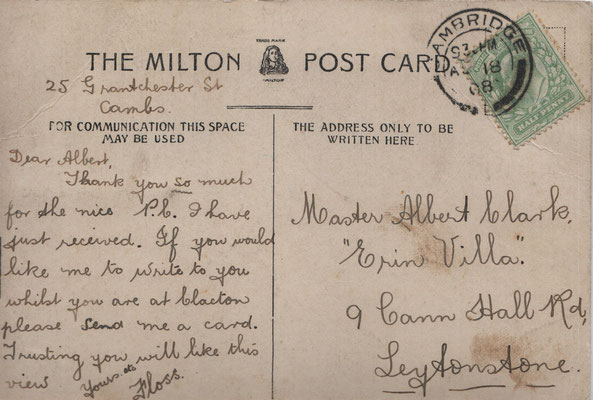 THE MILTON POST CARD
TRADE MARK
MILTON
CAMBRIDGE
AU 18
08
HALF PENNY
25 Grantchester St
Cambs.
FOR COMMUNICATION THIS SPACE
MAY BE USED
Dear Albert,
Thank you so much
for the nice P.C. I have
just received. If you would
like me to write to you
whilst you are at Clacton
please send me a card.
Trusting you will like this
view Yours etc
Floss.
THE ADDRESS ONLY TO BE
WRITTEN HERE
Master Albert Clark,
"Erin Villa".
9 Cann Hall Rd,
Leytonstone.